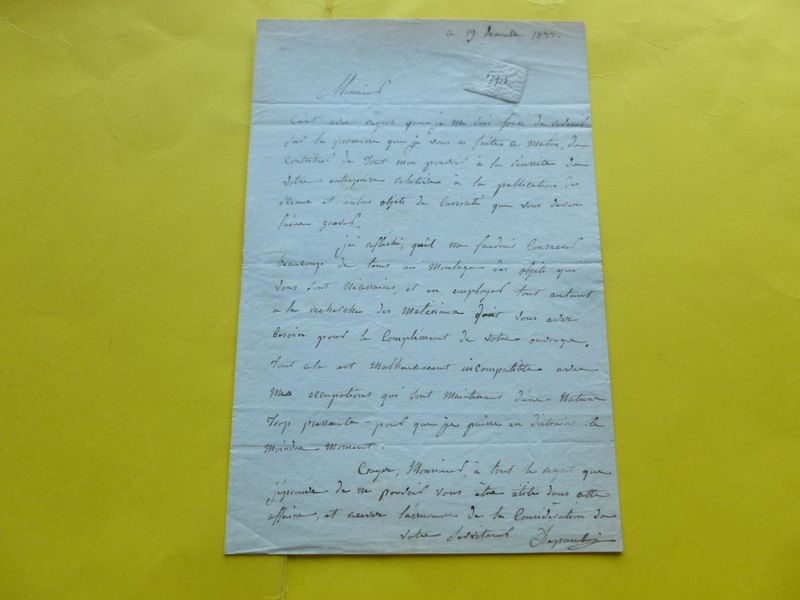 ce 19 décembre 1833.
Monsieur
C'est avec regret que je me vois forcé de revenir
sur la promesse que je vous ai faite ce matin, de
contribuer de tout mon pouvoir à la réussite de
votre entreprise relative à la publication des
sceaux et autres objets de curiosité que vous devez
faire graver.
j'ai réfléchi, qu'il me faudrait consacrer
beaucoup de tems au moulage des objets qui
vous sont nécessaires, et en employer tout autant
à la recherche des matériaux dont vous avez
besoin pour le complément de votre ouvrage.
Tout cela est malheureusement incompatible avec
mes occupations qui sont maintenant d'une nature
trop pressante pour que je puisse en distraire le
moindre moment.
Croyez, Monsieur, à tout le regret que
j'éprouve de ne pouvoir vous être utile dans cette
affaire, et recevez l'assurance de la considération de
votre serviteur Depaulis